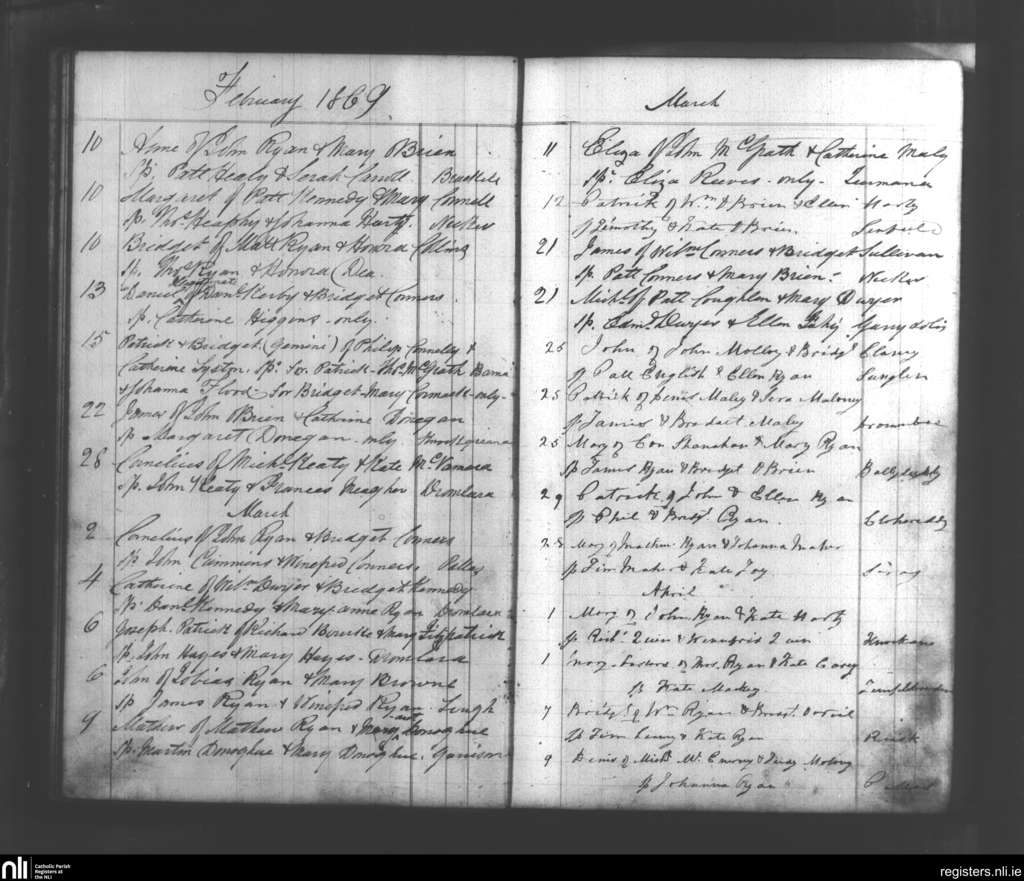 February 1869
10 Anne of John Ryan & Mary O'Brien
Sp. Patt Healy & Sarah
10 Margaret of Patt Kennedy & Mary Connell
Sp. Thos. Heaphy & Johanna Harty. Nicker
10 Bridget of Matt Ryan & Honora
Sp. Thos. Ryan & Honora Dea.
Illegitimate
13 Daniel of Danl. Kerby & Bridget Connors
Sp. Catherine Higgins only.
15 Patrick & Bridget (Gemini) of Philip Connelly &
Catherine Sp. for Patrick Thos. McGrath
& Johanna Flood for Bridget Mary Cormack only.
22 James of John O'Brien & Catherine Donegan
Sp. Margaret Donegan only.
28 Cornelius of Michl. Heaty & Kate McNamara
Sp. John Heaty & Frances Meagher Dromlara
March
2 Cornelius of John Ryan & Bridget Connors
Sp. John Cummins & Winefred Connors. Pallas
4 Catherine of Wm. Dwyer & Bridget Kennedy
Sp. Danl. Kennedy & Mary anne Ryan Dromlara
6 Joseph Patrick of Richard & Mary Fitzpatrick
Sp. John Hayes & Mary Hayes. Dromlara
6 of Tobias Ryan & Mary Browne
Sp. James Ryan & Winefred Ryan
9 Mathew of Mathew Ryan & Mary Donoghue
Sp. Martin Donoghue & Mary Donoghue. Garrison
March
11 Eliza of John McGrath & Catherine Maly
Sp. Eliza Reeves only.
12 Patrick of Wm. O'Brien & Ellen Harty
Sp. Timothy & Kate O'Brien.
21 James of Willm. Conners & Bridget Sullivan
Sp. Patt Conners & Mary Brien. Nicker
21 Michl. of Patt Coughlen & Mary Dwyer
Sp. Edmd. Dwyer & Ellen
25 John of John Molloy & Bridgt. Clancy
Sp. Patt English & Ellen Ryan
25 Patrick of Denis Maley & Maloney
Sp. James & Bridget Maley
25 Mary of Con Shanahan & Mary Ryan
Sp. James Ryan & Bridget O'Brien
29 Patrick of John & Ellen Ryan
Sp. Phil & Bridgt. Ryan.
28 Mary of Mathew Ryan & Johanna Maher
Sp. Tim Maher & Kate Foy
April
1 Mary of John Ryan & Kate Harty
Sp. Robt. Quin & Winifred Quin
1 of Thos. Ryan & Kate Carey
Sp. Kate Mackey
7 Bridgt. of Wm. Ryan & Bridgt.
Sp. Tim & Kate Ryan
9 Denis of Michl. & Judy Molony
Sp. Johanna Ryan
nli
Catholic Parish
Registers at
the NLI
registers.nli.ie